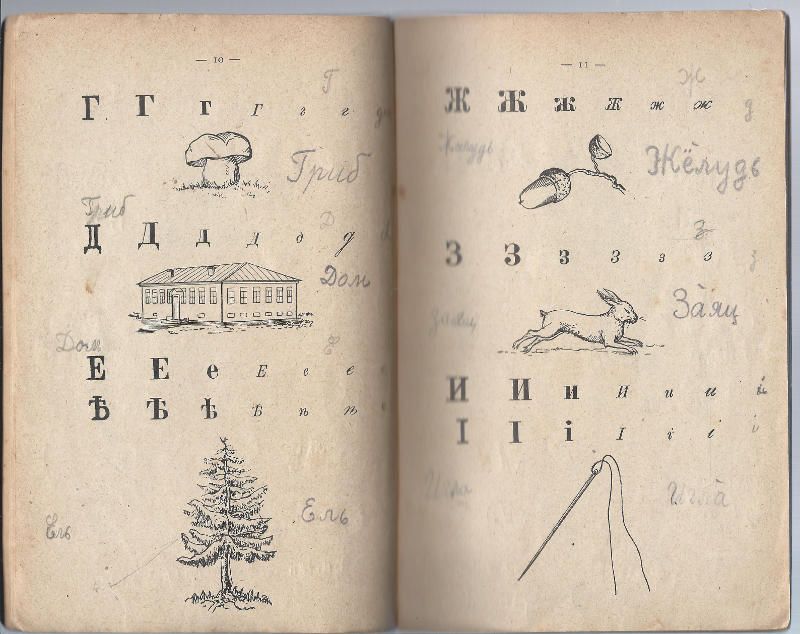 — 10 —
Г
Г Г г Г г г
Гриб
Гриб
Д
Д Д д Д д д
Дом
Дом
Е Е е Е е е
Ѣ Ѣ ѣ Ѣ ѣ ѣ
Ель
Ель
— 11 —
Ж
Ж Ж ж Ж ж ж
Желудь
Жёлудь
З
З З з З з з
Заяц
За́яц
И И и И и и й
І І і І і і
Игла
Игла́